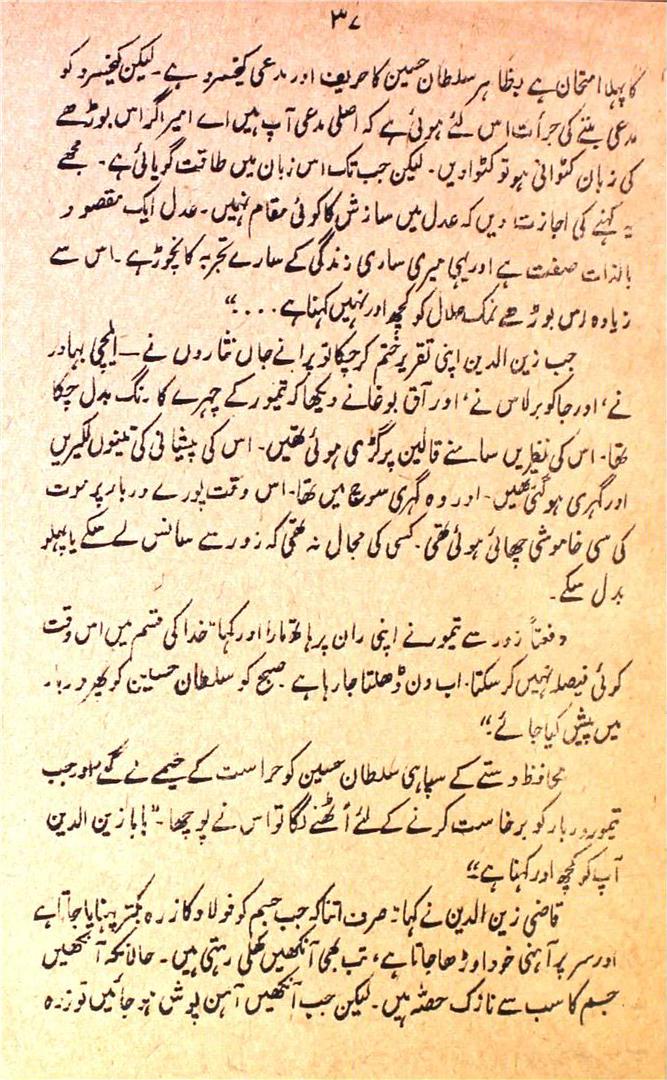 ۳۷
کا پہلا امتحان ہے بظاہر سلطان حسین کا حریف اور مدعی کیخسرو ہے۔ لیکن کیخسرو کو
مدعی بننے کی جرأت اس لئے ہوئی ہے کہ اصلی مدعی آپ ہیں اے امیر اگر اس بوڑھے
کی زبان کٹوانی ہو تو کٹوا دیں۔ لیکن جب تک اس زبان میں طاقت گویائی ہے۔ مجھے
یہ کہنے کی اجازت دیں کہ عدل میں سازش کا کوئی مقام نہیں۔ عدل ایک مقصود
بالذات صفت ہے اور یہی میری ساری زندگی کے سارے تجربہ کا نچوڑ ہے۔ اس سے
زیادہ اس بوڑھے نمک حلال کو کچھ اور نہیں کہنا ہے۔۔۔۔"
جب زین الدین اپنی تقریر ختم کر چکا تو پرانے جاں نثاروں نے — ایلچی بہادر
نے، اور جاکو برلاس نے، اور آق بوغا نے دیکھا کہ تیمور کے چہرے کا رنگ بدل چکا
تھا۔ اس کی نظریں سامنے قالین پر گڑی ہوئی تھیں۔ اس کی پیشانی کی تینوں لکیریں
اور گہری ہو گئی تھیں۔ اور وہ گہری سوچ میں تھا۔ اس وقت پورے دربار پر موت
کی سی خاموشی چھائی ہوئی تھی۔ کسی کی مجال نہ تھی کہ زور سے سانس لے سکے یا پہلو
بدل سکے۔
دفعتاً زور سے تیمور نے اپنی ران پر ہاتھ مارا اور کہا "خدا کی قسم میں اس وقت
کوئی فیصلہ نہیں کر سکتا۔ اب دن ڈھلتا جا رہا ہے صبح کو سلطان حسین کو پھر دربار
میں پیش کیا جائے۔"
محافظ دستے کے سپاہی سلطان حسین کو حراست کے خیمے لے گئے اور جب
تیمور دربار کو برخاست کرنے کے لئے اٹھنے لگا تو اس نے پوچھا۔ "بابا زین الدین
آپ کو کچھ اور کہنا ہے"
قاضی زین الدین نے کہا: صرف اتنا کہ جب جسم کو فولاد کا زرہ بکتر پہنایا جاتا ہے
اور سر پر آہنی خود اوڑھا جاتا ہے، تب بھی آنکھیں کھلی رہتی ہیں۔ حالانکہ آنکھیں
جسم کا سب سے نازک حصّہ ہیں۔ لیکن جب آنکھیں آہن پوش ہو جائیں تو زرہ